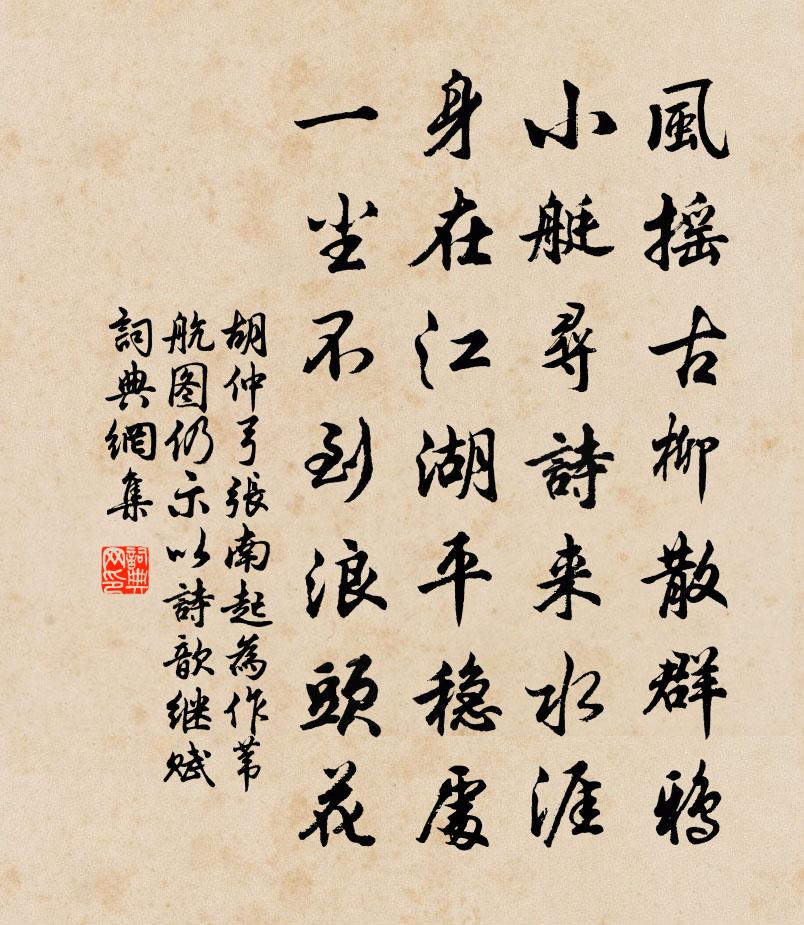 風摇古柳散群鸦
小艇尋詩来水涯
身在江湖平穏處
一尘不到浪頭花
胡仲弓張南起為作苇
航图仍示以詩歆继赋
詞典網集
詞典网印